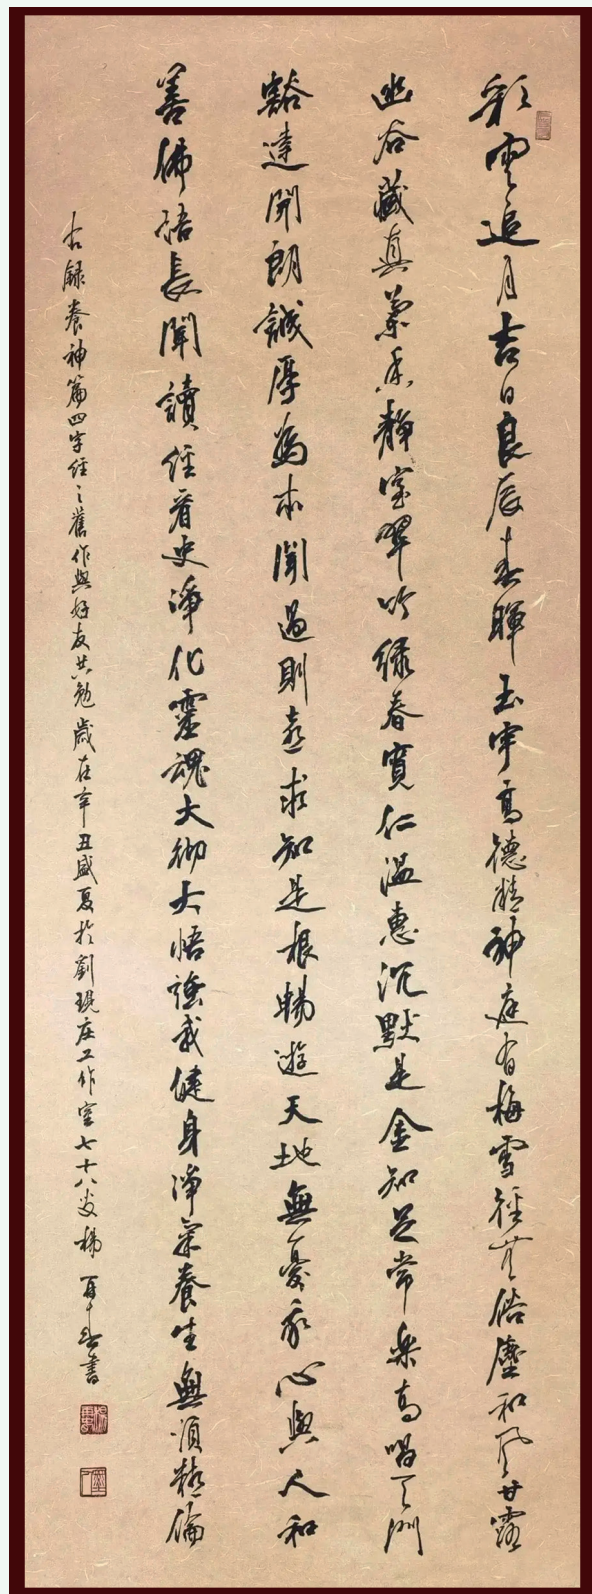 彩雲追月吉日良辰春暉玉宇高德精神庭有梅雪徑無俗塵和風甘露
幽谷藏真蘭香靜室翠竹綠春寬仁溫惠沉默是金知足常樂高唱天洲
豁達開朗誠厚為本聞過則喜求知是根暢遊天地無憂我心與人和
善佛語長聞讀經看史淨化靈魂大徹大悟強我健身淨氣養生無須
右錄養神篇四字經之舊作與好友共勉歲在辛丑盛夏於劉現庄工作室七十八叟楊書